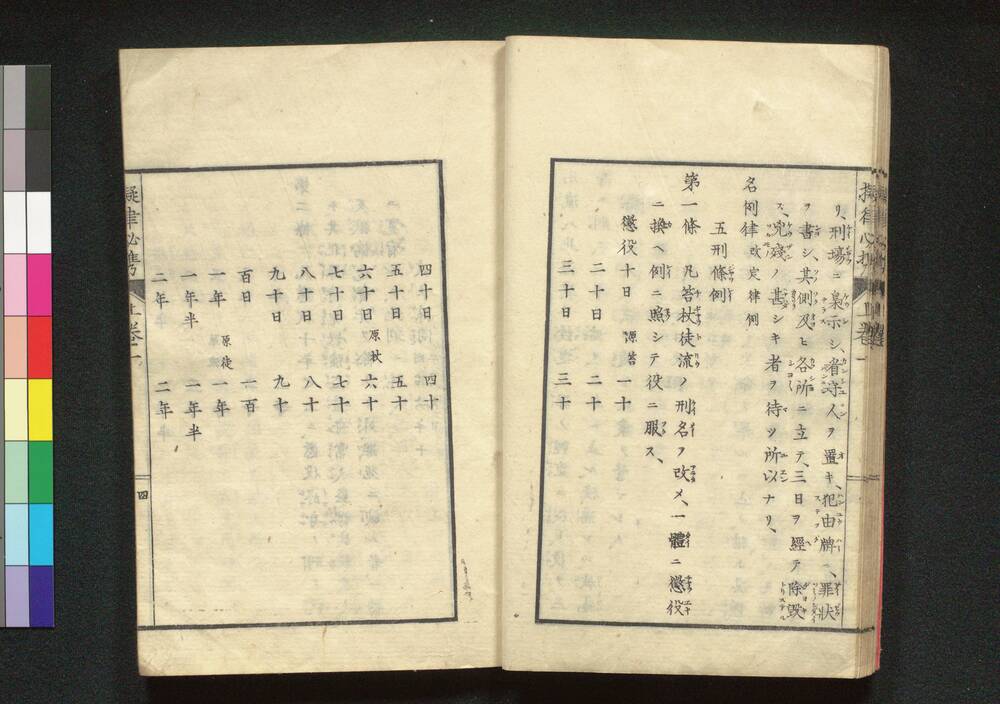 リ、刑場ニ梟示シ、看守人ヲ置キ、犯由牌ニ、罪狀
ヲ書シ、其側及ヒ各所ニ立テ、三日ヲ經テ除毀
ス、兇殘ノ甚シキ者ヲ待ツ所以ナリ、
名例律 改定律例
五刑條例
第一條 凡笞杖徒流ノ刑名ヲ改メ、一體ニ懲役
ニ換ヘ例ニ照シテ役ニ服ス、
懲役十日 原笞 一十
二十日 二十
三十日 三十
四十日 四十
五十日 五十
六十日 原杖 六十
七十日 七十
八十日 八十
九十日 九十
百日 一百
一年 原徒 一年
一年半 一年半
二年 二年
擬律必携 上卷一
四